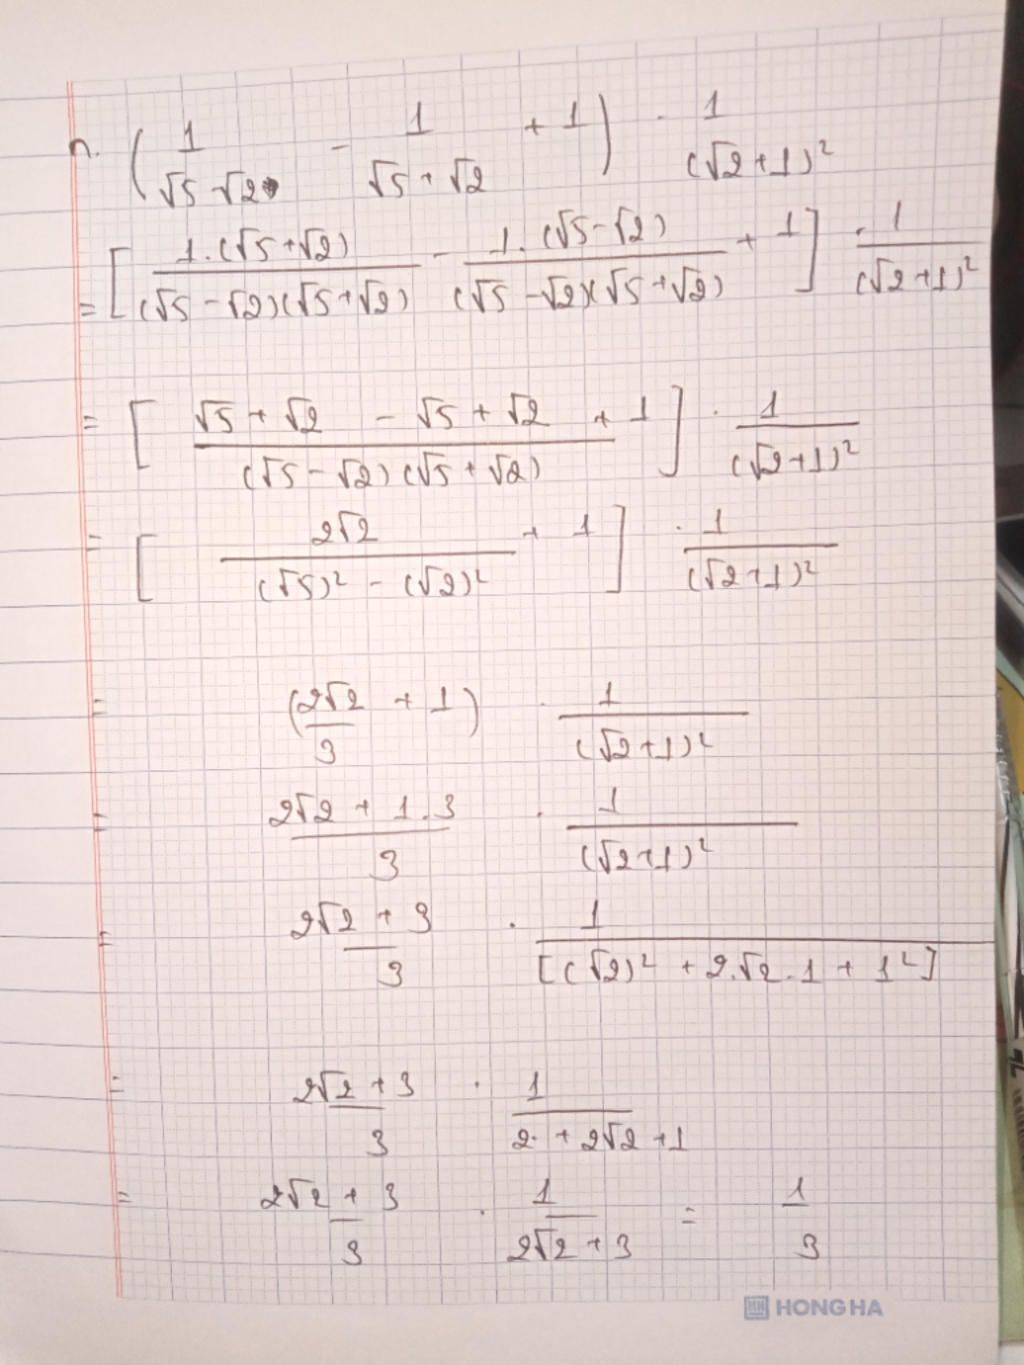 n. (1/(√5 - √2) - 1/(√5 + √2) + 1) . 1/(√2 + 1)²
= [1.(√5 + √2)/((√5 - √2)(√5 + √2)) - 1.(√5 - √2)/((√5 - √2)(√5 + √2)) + 1] . 1/(√2 + 1)²
= [(√5 + √2 - √5 + √2)/((√5 - √2)(√5 + √2)) + 1] . 1/(√2 + 1)²
= [2√2/((√5)² - (√2)²) + 1] . 1/(√2 + 1)²
= (2√2/3 + 1) . 1/(√2 + 1)²
= (2√2 + 1.3)/3 . 1/(√2 + 1)²
= (2√2 + 3)/3 . 1/[(√2)² + 2.√2.1 + 1²]
= (2√2 + 3)/3 . 1/(2 + 2√2 + 1)
= (2√2 + 3)/3 . 1/(2√2 + 3) = 1/3
HONG HA